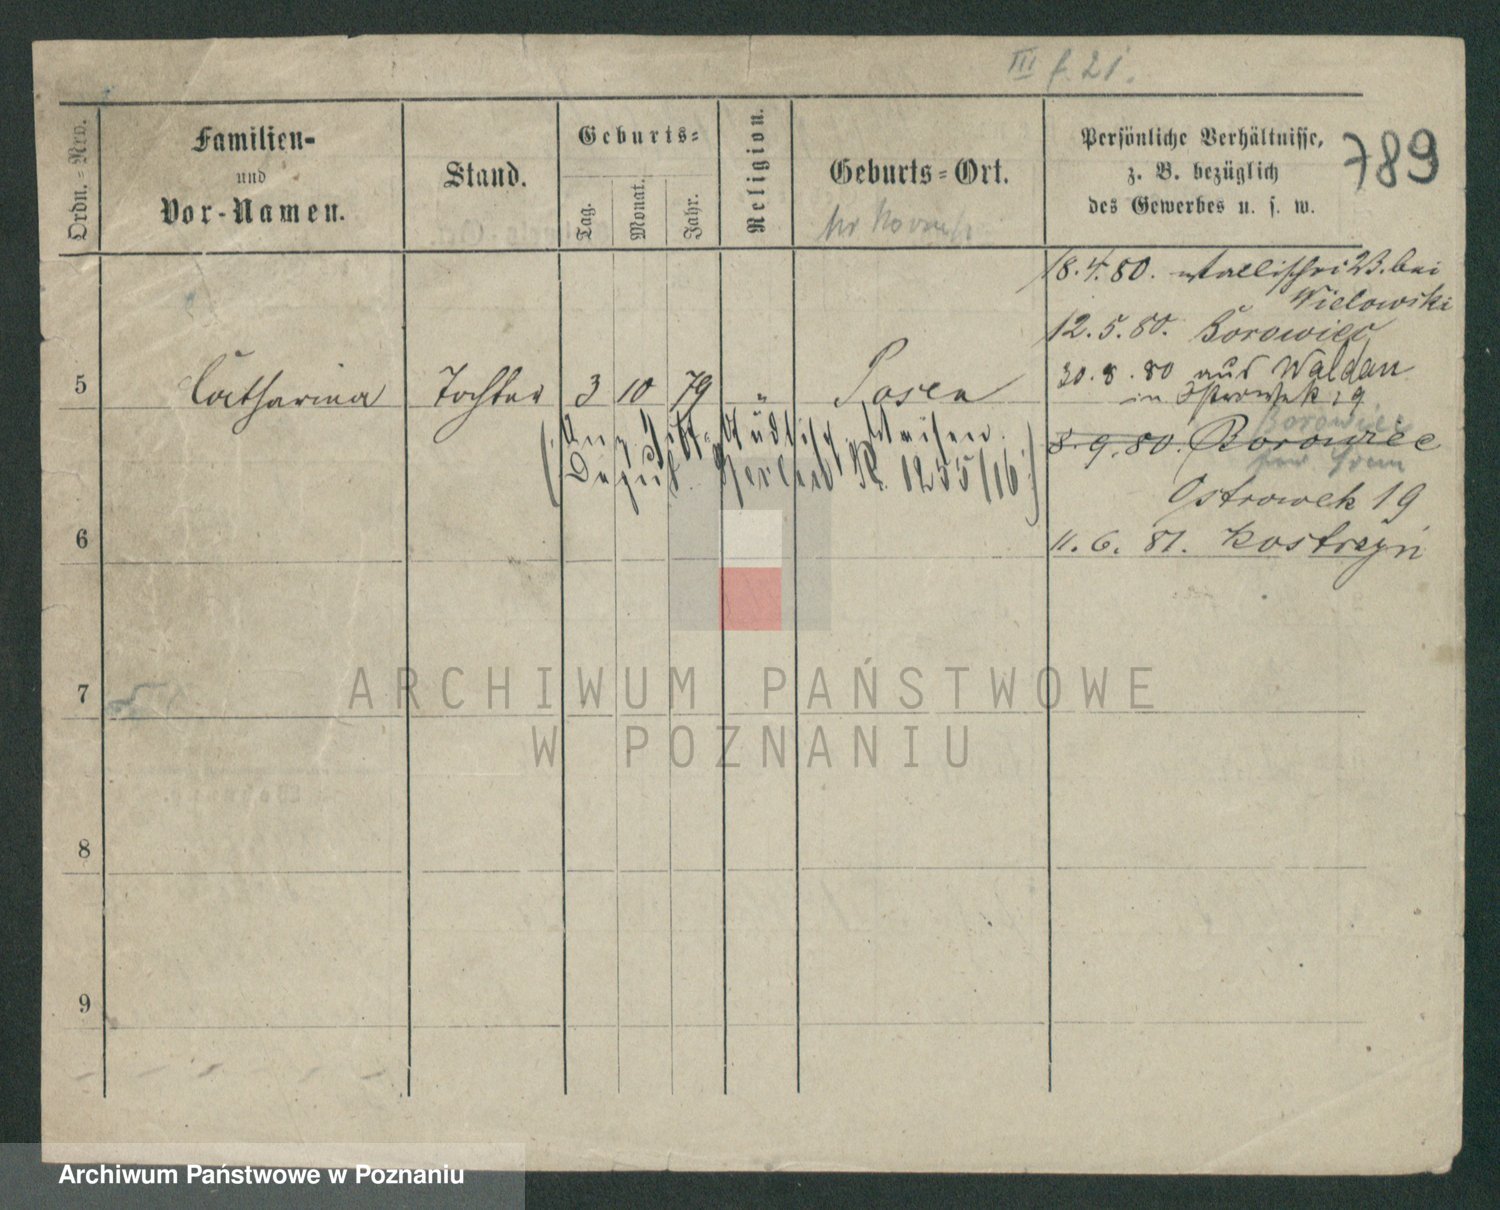 III f. 21.
789
Ordn.-Nro.
Familien-
und
Vor-Namen.
Stand.
Geburts-
Tag.
Monat.
Jahr.
Religion.
Geburts-Ort.
Persönliche Verhältnisse,
z. B. bezüglich
des Gewerbes u. s. w.
18. 4. 80. Wallischei 23. bei
Wielowski
12. 5. 80. Borowiec
30. 8. 80 aus Waldau
in Ostrowek 19
5 Catharina Tochter 3 10 79 " Posen
Borowiec
8. 9. 80. Borowiec
Ostrowek 19
11. 6. 81. Kostrzyn
K. 1255/16.)
6
7
8
9
ARCHIWUM PAŃSTWOWE
W POZNANIU
Archiwum Państwowe w Poznaniu